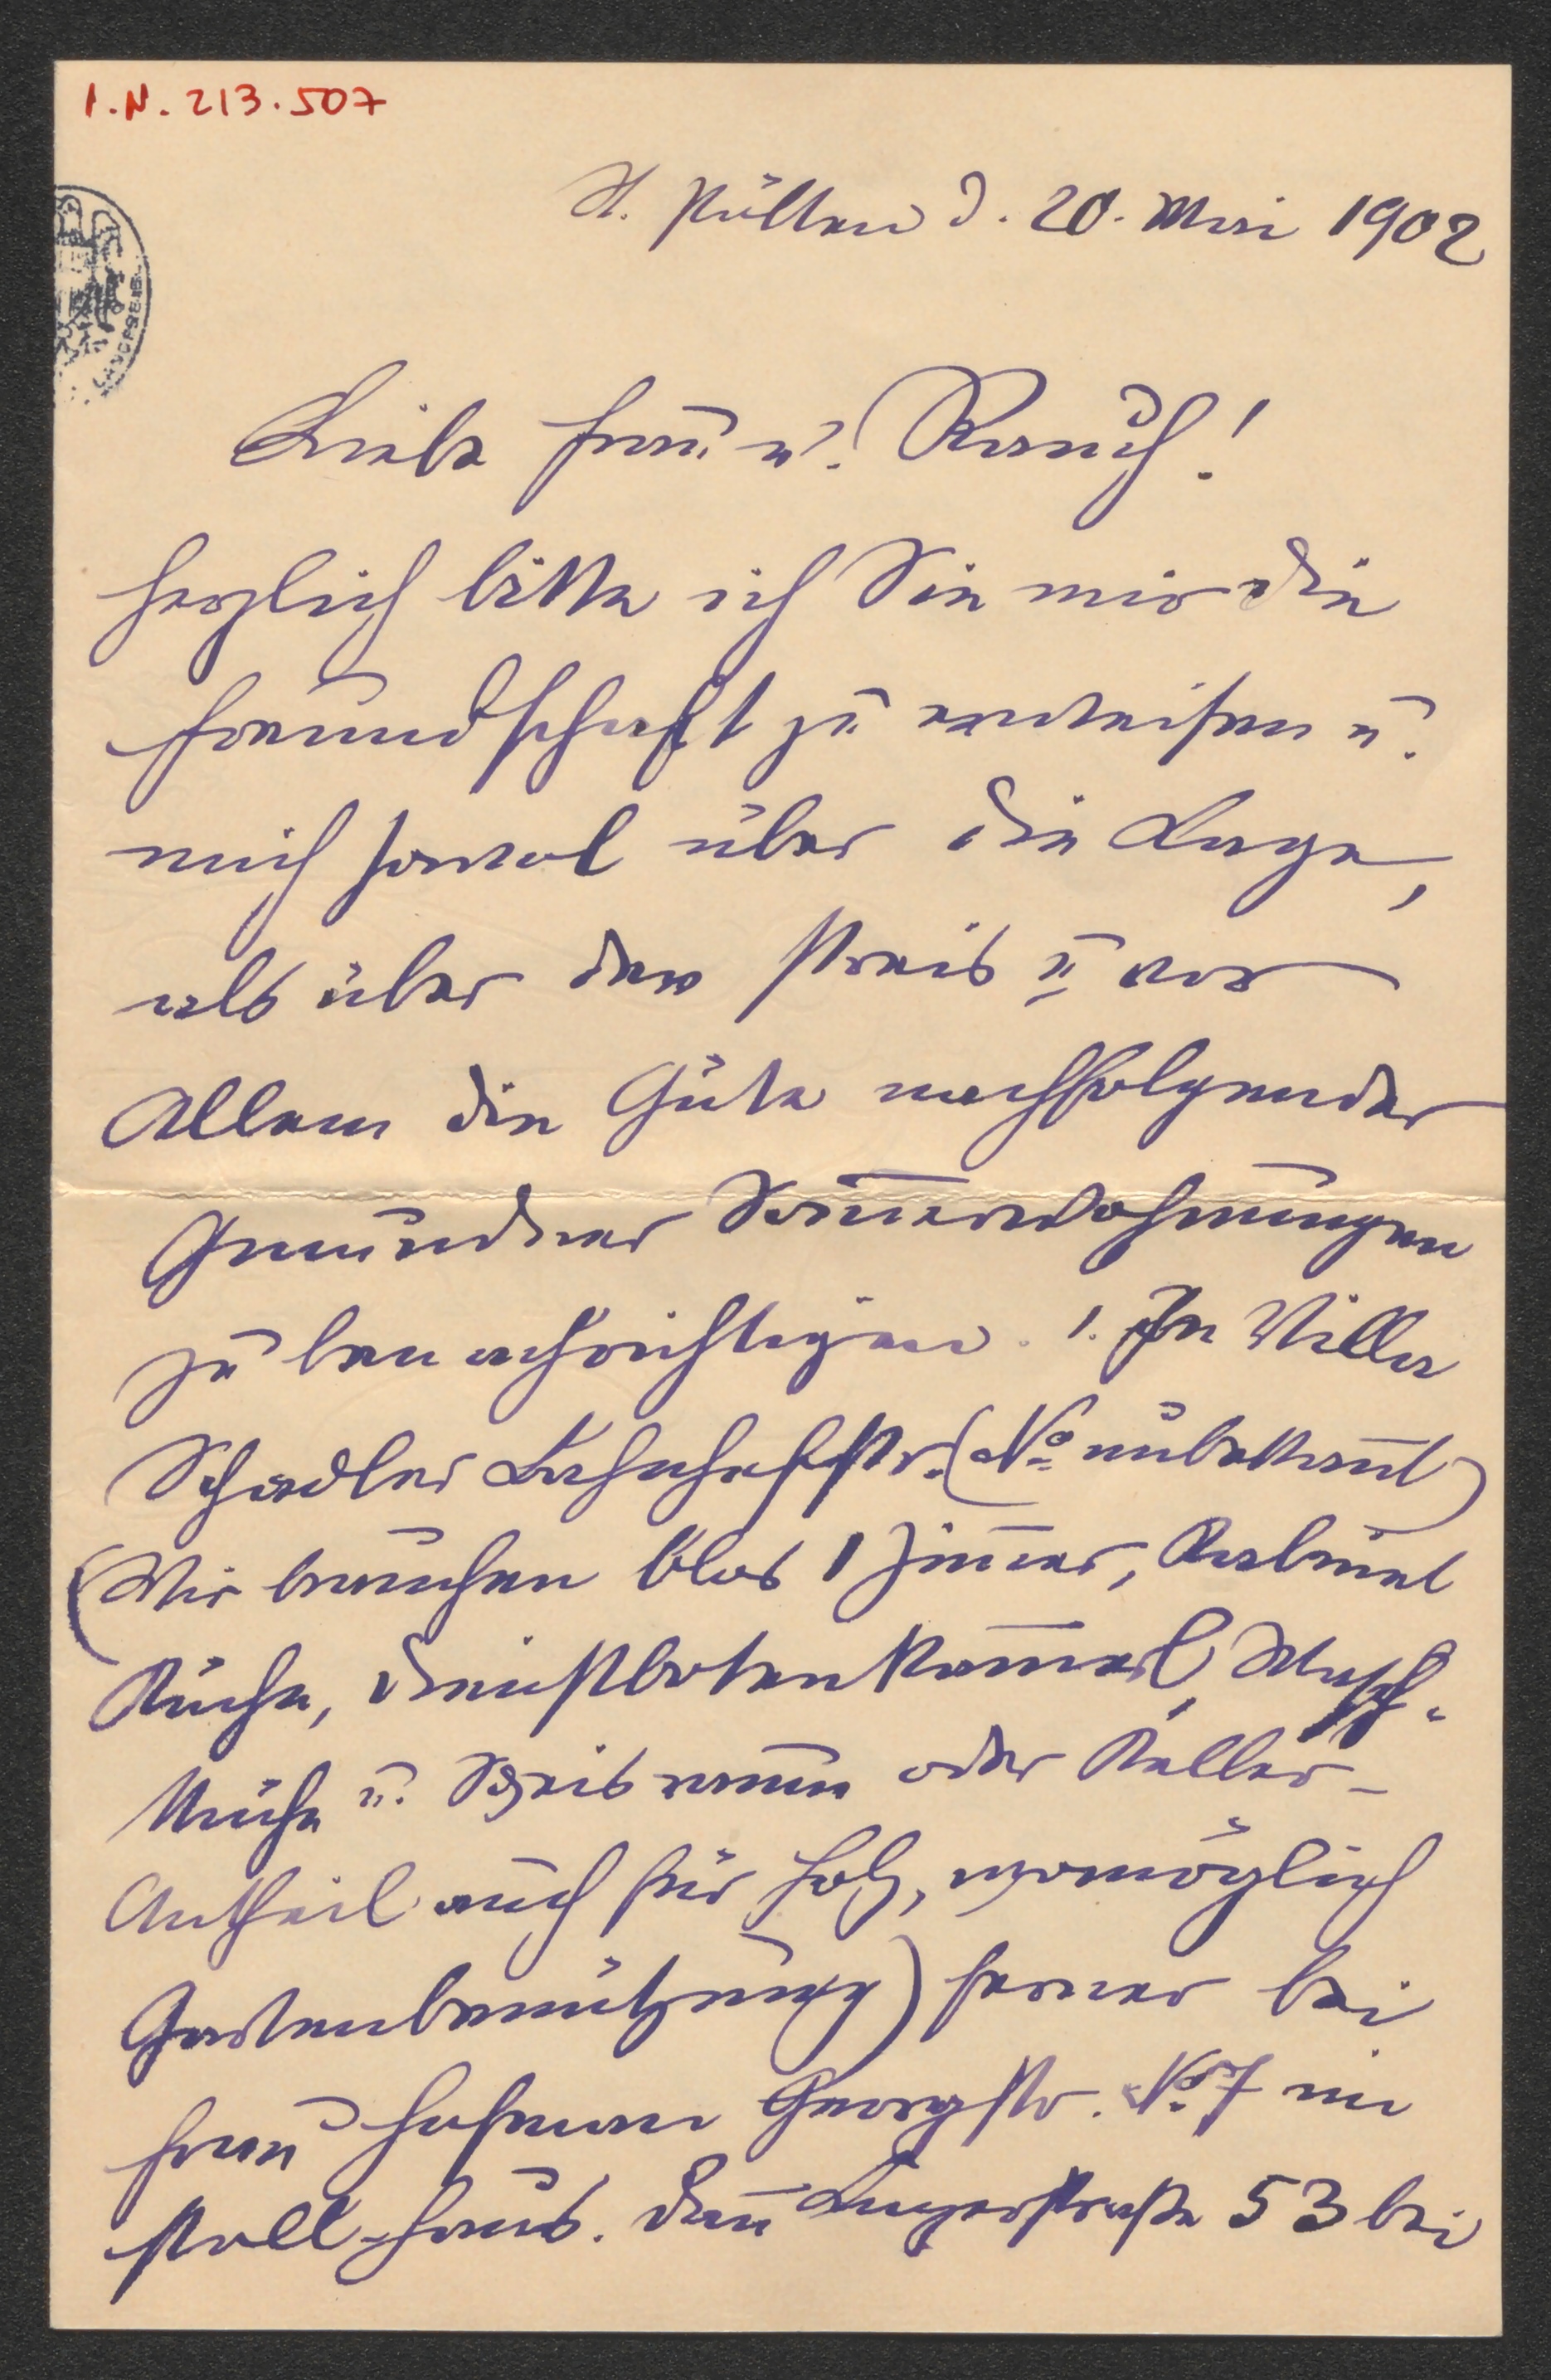 I.N. 213.507
St. Pölten d. 20. Mai 1902
Liebe Frau v. Rauch!
Herzlich bitte ich Sie mir die
Freundschaft zu erweisen u.
mich sowol über die Lage,
als über den Preis u vor
Allem die Güte nachfolgender
Gmundner Som̅erwohnungen
zu benachrichtigen. 1. In Villa
Schadler (No unbekan̅t)
(Wir brauchen blos 1 Zim̅er, Kabinet
Küche, Dienstbotenkam̅erl, Wasch-
küche u. Speisraum oder Keller-
Antheil auch für Holz, womöglich
Gartenbenützung) ferner bei
Frau Georgstr. No 7 im
Stoll-Haus. Dan̅ Lagerstraße 53 bei